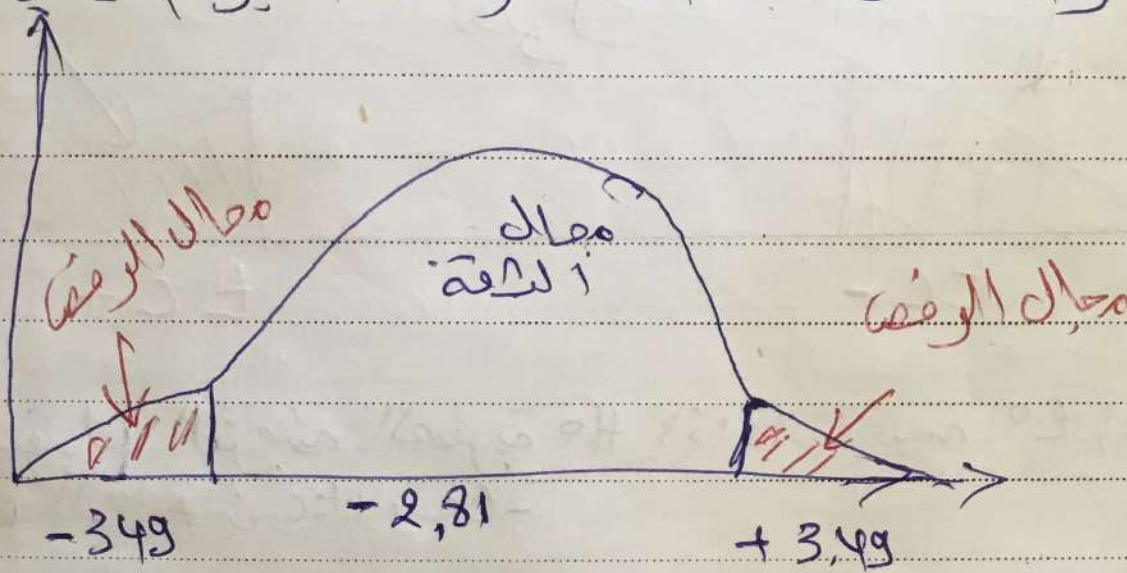 مجال الرفض
مجال
الثقة
مجال الرفض
-349
-2,81
+3,49